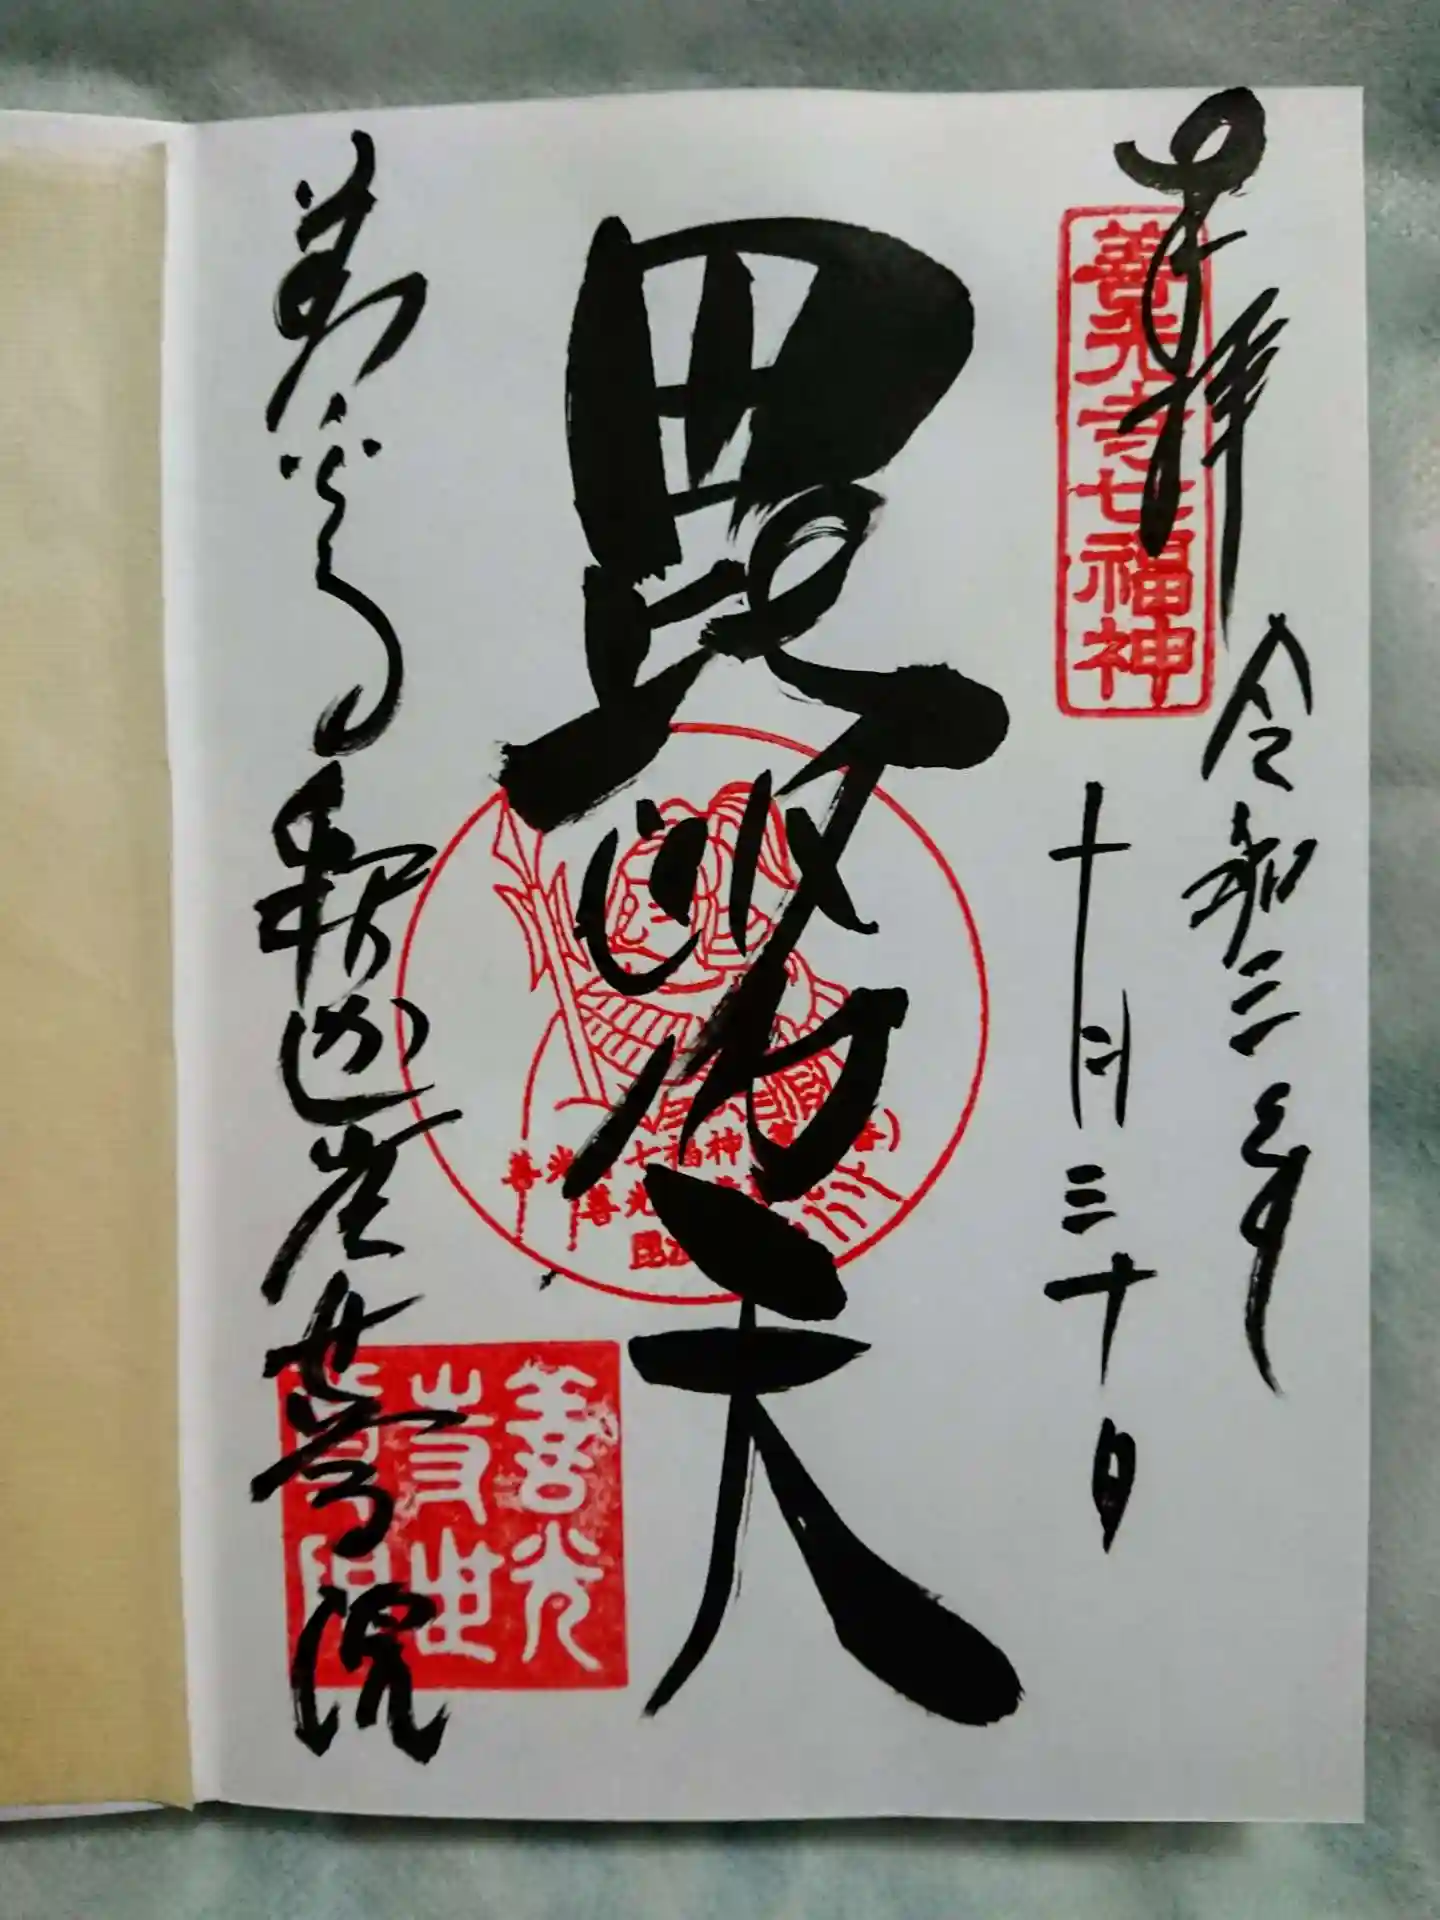 奉拝
善光寺七福神
令和三年
十月三十日
毘沙門天
善光寺釈迦堂世尊院
善光寺世尊院
七福神